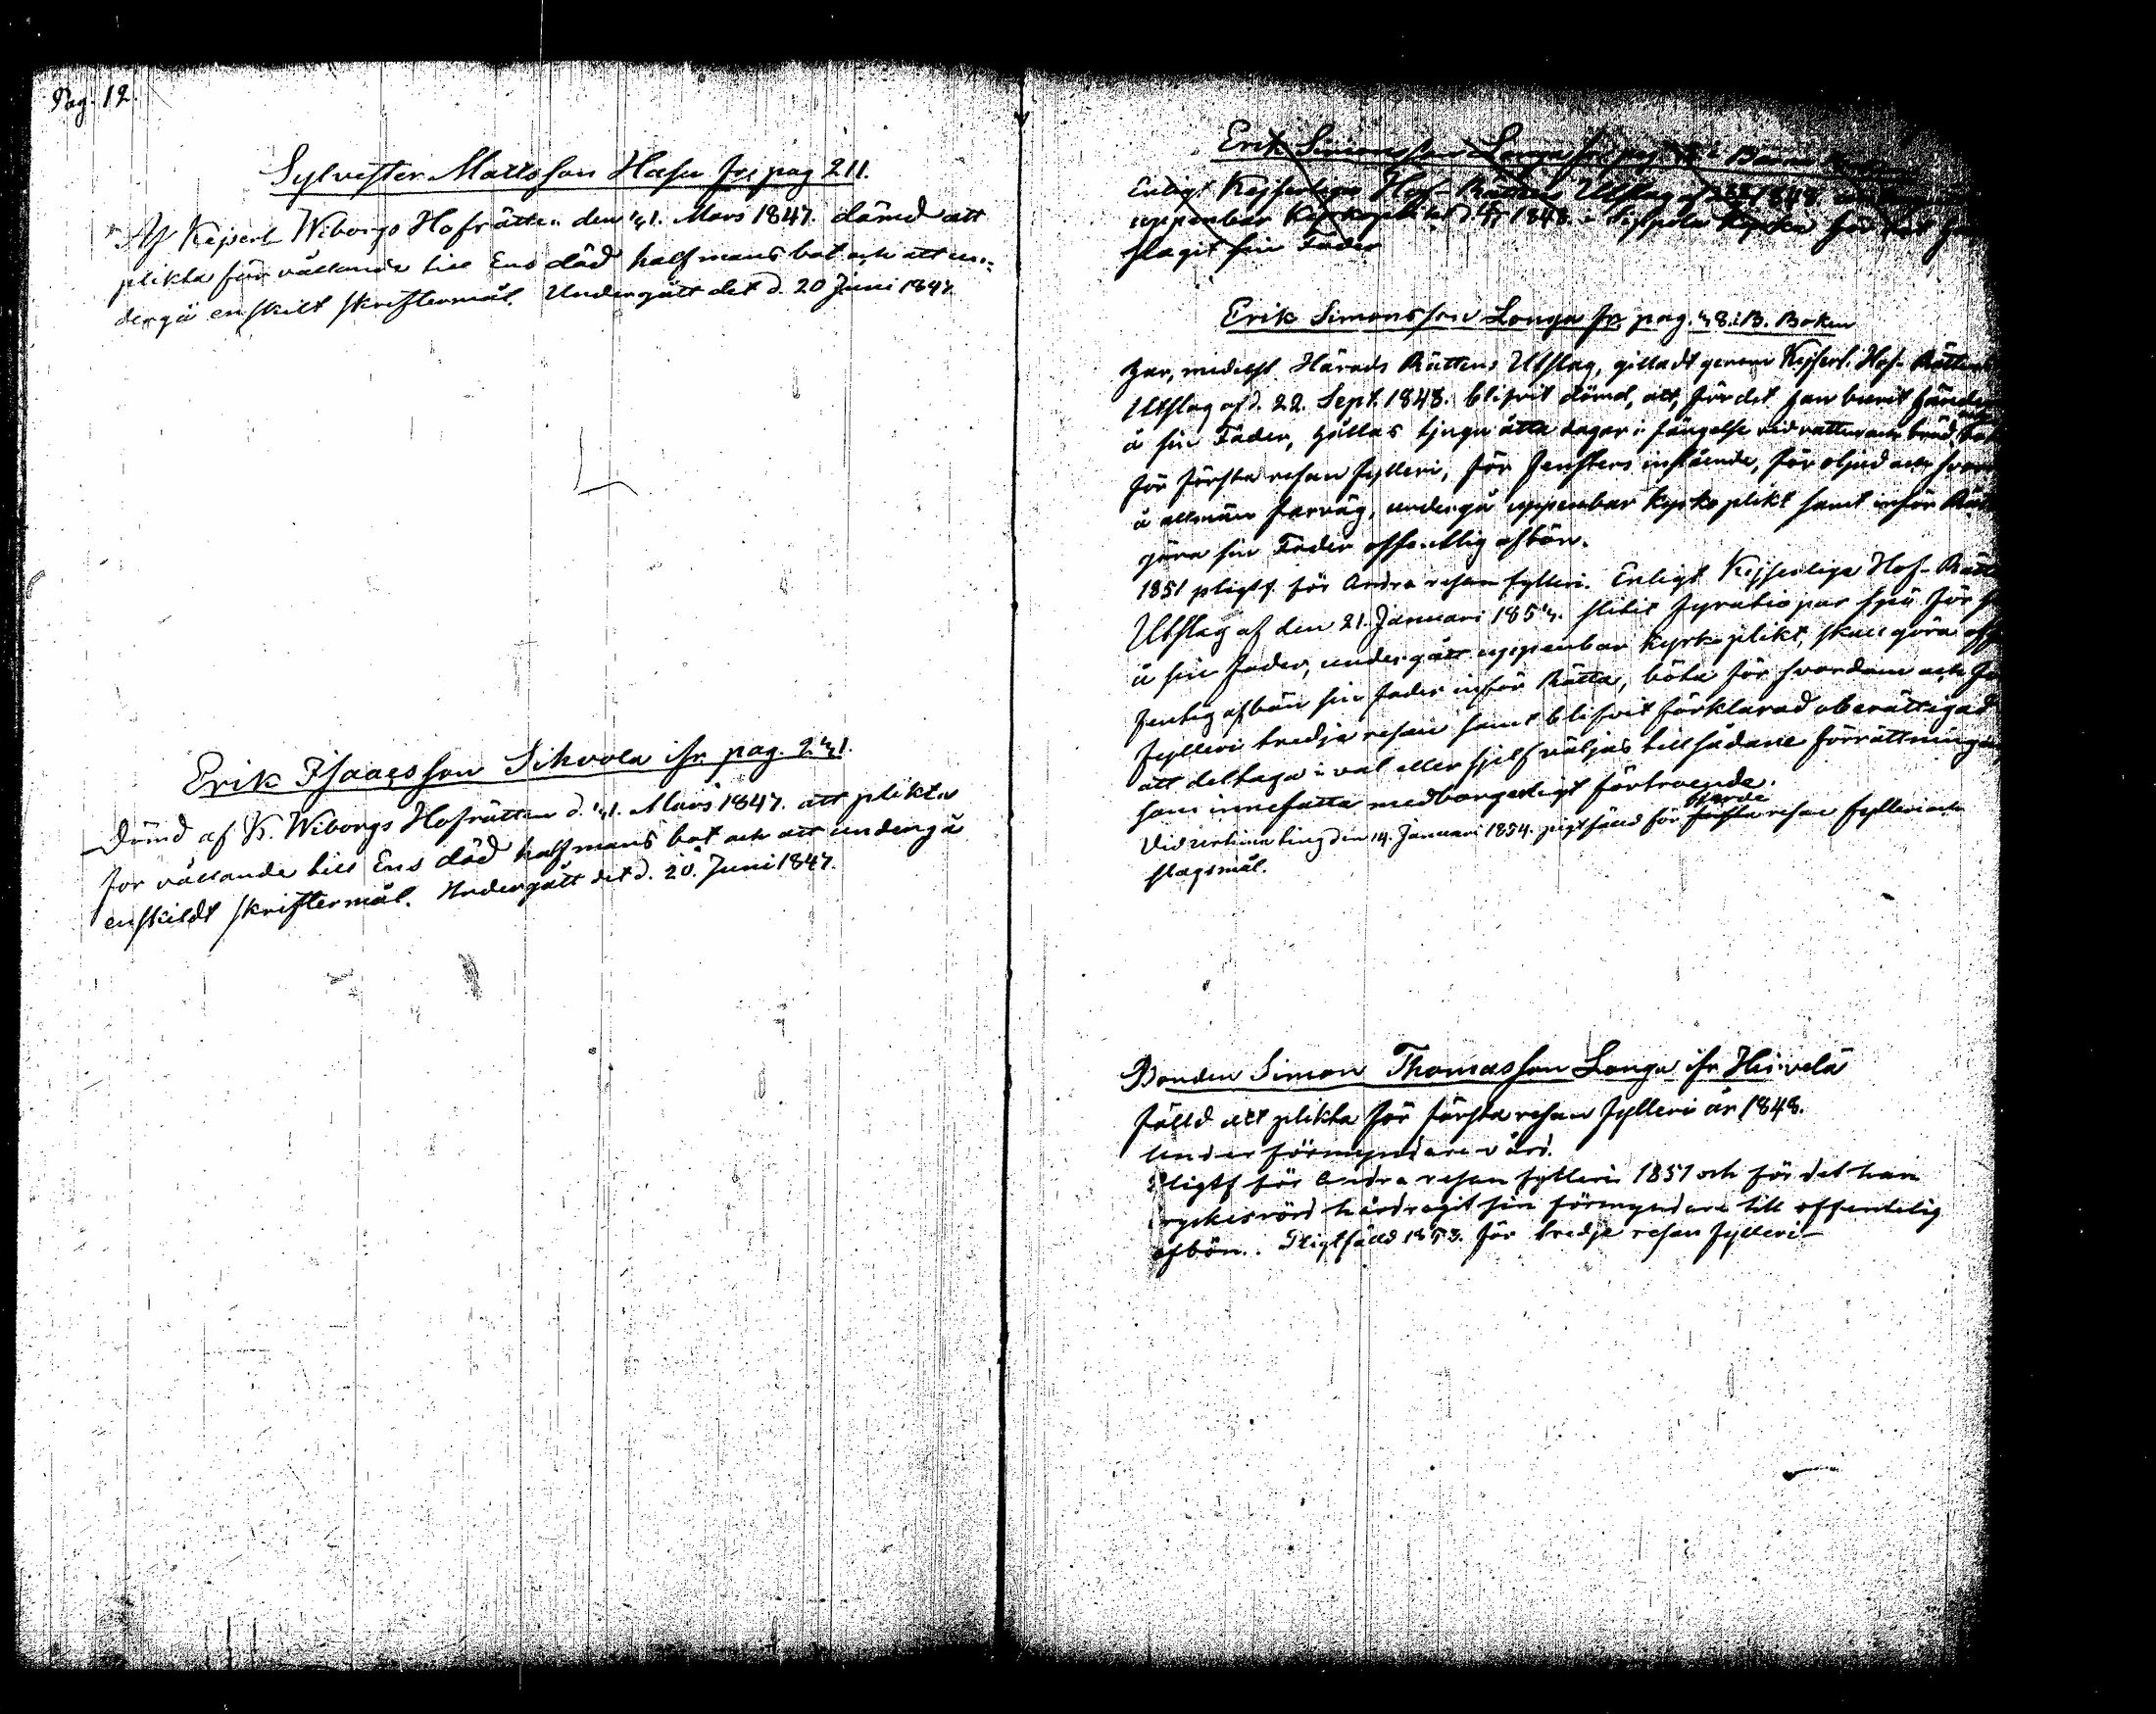 Pag. 12.
Sylvester Mattsson Hasu fr. pag 211.
Af Kejserl Wiborgs Hofrätten den 4. Mars 1847. dömd att
plikta för vållande till Ens död half mans bot och att un-
dergå enskilt skriftermål. Undergått det d. 20 Juni 1847.
Erik Isaacsson Sihvola ifr. pag. 241.
Dömd af K. Wiborgs Hofrätten d. 4. Mars 1847. att plikta
för vållande till Ens död half mans bot och att undergå
enskildt skriftermål. Undergått det d. 20. Juni 1847.
Erik Simonsson Longa fr. pag
Enligt Kejserliga Hof-Rättens Utslag af 1848
uppenbar Kyrkoplikt d. 1848. i Sippola Kyrka för det
slagit sin Fader
Erik Simonsson Longa fr. pag. 48. i B. Boken
har, medelst Härads Rättens Utslag, gilladt genom Kejserl. Hof-Rättens
Utslag af d. 22. Sept. 1848. blifvit dömd, att, för det han burit händer
å sin Fader, hållas tjugu åtta dagar i fängelse vid vatten och bröd,
för första resan fylleri, för fensters inslående, för oljud och
å allmän farväg, undergå uppenbar kyrkoplikt samt inför
göra sin Fader offentlig afbön.
1851 pligtf. för Andra resan fylleri. Enligt Kejserliga Hof-
Utslag af den 21. Januari 1854. slitit fyratio par spö för
å sin fader, undergått uppenbar kyrkoplikt, skall göra
fentlig afbön sin fader inför Rätta, böta för svordom och
fylleri tredje resan samt blifvit förklarad oberättigad
att deltaga i val eller sjelf väljas till sådane förrättningar,
som innefatta medborgerligt förtroende.
Vid vintertinget den 14. Januari 1854. pligtfälld för fjerde resan fylleri och
slagsmål.
Bonden Simon Thomasson Longa ifr. Heivelä
fälld att plikta för första resan fylleri år 1848.
Under förmyndare vård.
Pligtf för Andra resan fylleri 1851 och för det han
ryckesvörd hårdragit sin förmyndare till offentelig
afbön. Pligtfälld 1853. för tredje resan fylleri